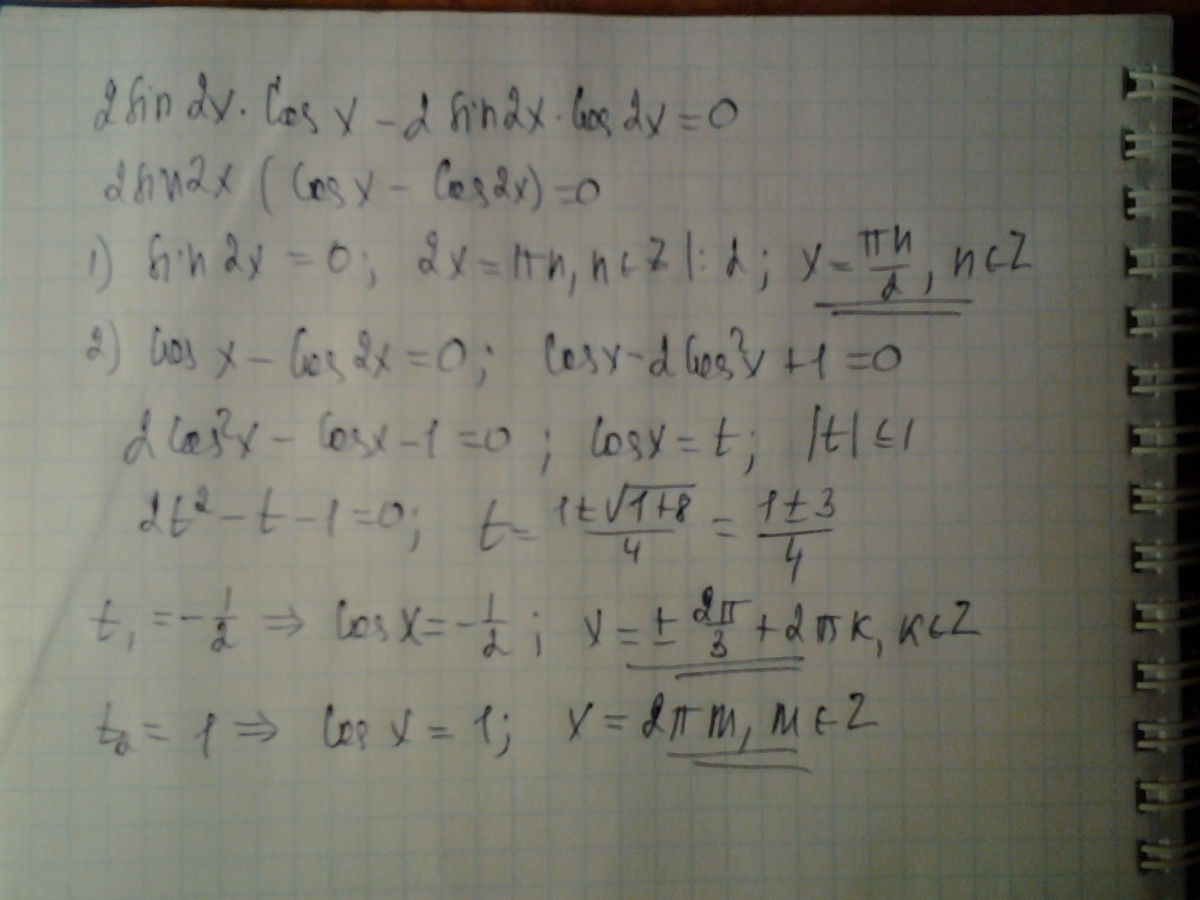 2 sin 2x · cos x - 2 sin 2x · cos 2x = 0
2 sin 2x (cos x - cos 2x) = 0
1) sin 2x = 0; 2x = πn, n ∈ Z |: 2; x = πn/2, n ∈ Z
2) cos x - cos 2x = 0; cos x - 2 cos²x + 1 = 0
2 cos²x - cos x - 1 = 0; cos x = t; |t| ≤ 1
2t² - t - 1 = 0; t = (1 ± √(1+8))/4 = (1 ± 3)/4
t₁ = -1/2 ⇒ cos x = -1/2; x = ± 2π/3 + 2πk, k ∈ Z
t₂ = 1 ⇒ cos x = 1; x = 2πm, m ∈ Z